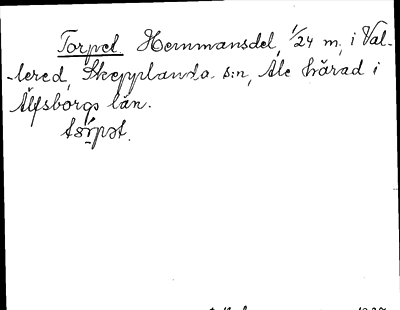 Torpet. Hemmansdel, 1/24 m, i Val-
-lered, Skepplanda s:n, Ale härad i
Älfsborgs län.